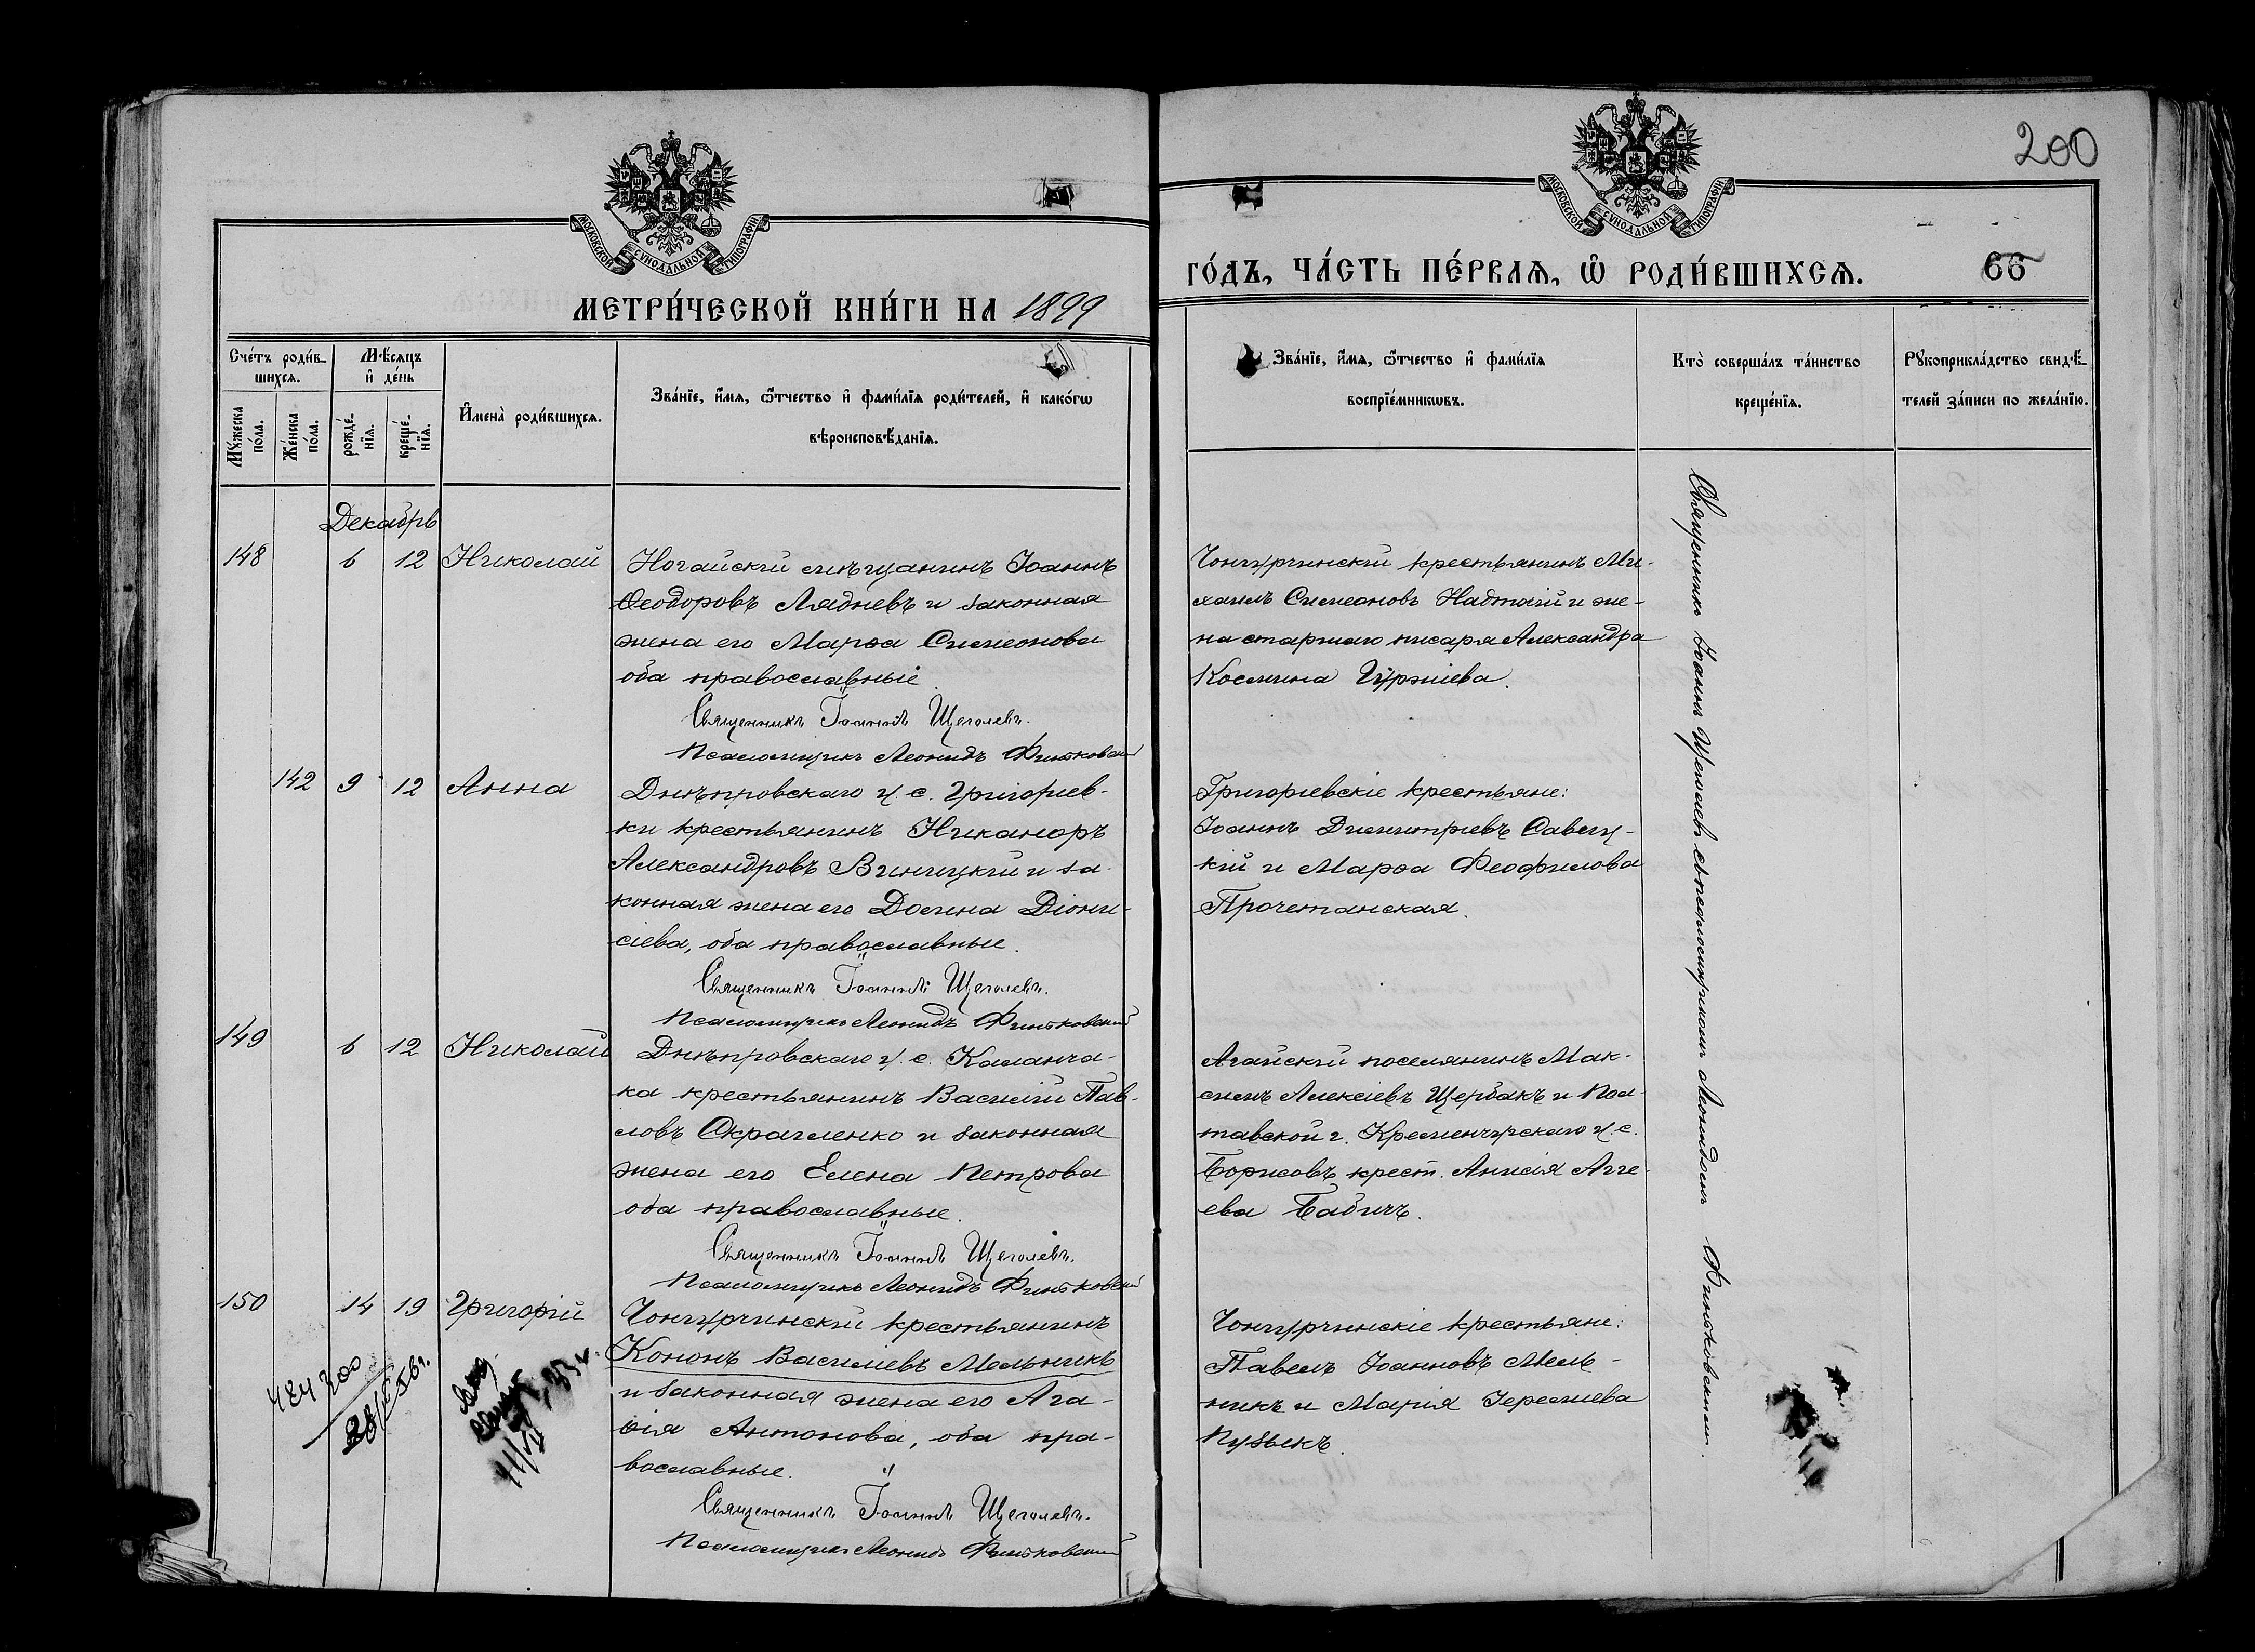 200
МОСКОВСКОЙ СѴНОДАЛЬНОЙ ТИПОГРАФІИ
МОСКОВСКОЙ СѴНОДАЛЬНОЙ ТИПОГРАФІИ
МЕТРИ́ЧЕСКОЙ КНИ́ГИ НА 1899
ГО́ДЪ, ЧА́СТЬ ПЕ́РВАѦ, Ѡ҆ РОДИ́ВШИХСѦ.
66
Сче́тъ роди́в-
шихсѧ.
Мѣ́сѧцъ
и҆ де́нь
Мꙋ́жеска
по́ла.
Же́нска
по́ла.
рожде́-
нїѧ.
креще́-
нїѧ.
И҆мена̀ роди́вшихсѧ.
Зва́нїе, и҆́мѧ, ѻ҆́тчество и҆ фами́лїѧ роди́телей, и҆ како́гѡ
вѣроисповѣ́данїѧ.
Зва́нїе, и҆́мѧ, ѻ҆́тчество и҆ фами́лїѧ
воспрїе́мникѡвъ.
Кто̀ соверша́лъ та́инство
креще́нїѧ.
Рꙋкоприкла́дство свидѣ́-
телей за́писи по жела́нїю.
Декабрь
148 6 12 Николай
Ногайскій мѣщанинъ Іоаннъ
Ѳеодоровъ Лядневъ и законная
жена его Марѳа Симеонова
оба православные.
Священникъ Іоаннъ Щеголевъ.
Псаломщикъ Леонидъ Финьковскій
Чонгурчинскій крестьянинъ Ми-
хаилъ Симеоновъ Надтачій и же-
на старшаго писаря Александра
Космина Гуржіева.
142 9 12 Анна
Днѣпровскаго у. с. Григорьев-
ки крестьянинъ Никаноръ
Александровъ Виницкій и за-
конная жена его Домна Діони-
сіева, оба православные.
Священникъ Іоаннъ Щеголевъ.
Псаломщикъ Леонидъ Финьковскій
Григорьевскіе крестьяне:
Іоаннъ Димитріевъ Савиц-
кій и Марѳа Феофилова
Прочетанская.
149 6 12 Николай
Днѣпровскаго у. с. Каланча-
ка крестьянинъ Василій Пав-
ловъ Скрагленко и законная
жена его Елена Петрова
оба православные.
Священникъ Іоаннъ Щеголевъ.
Псаломщикъ Леонидъ Финьковскій
Агайскій поселянинъ Мак-
симъ Алексіевъ Щербакъ и Пол-
тавской г. Кременчугскаго у. с.
Борисовъ крест. Анисія Агге-
ева Бабичъ.
150 14 19 Григорій
Чонгурчинскій крестьянинъ
Кононъ Василіевъ Мельникъ
и законная жена его Ага-
ѳія Антонова, оба пра-
вославные.
Священникъ Іоаннъ Щеголевъ.
Псаломщикъ Леонидъ Финьковскій
Чонгурчинскіе крестьяне:
Павелъ Іоанновъ Мель-
никъ и Марія Іереміева
Пузыкъ.
Священникъ Іоаннъ Щеголевъ съ псаломщикомъ Леонидомъ Финьковскимъ.